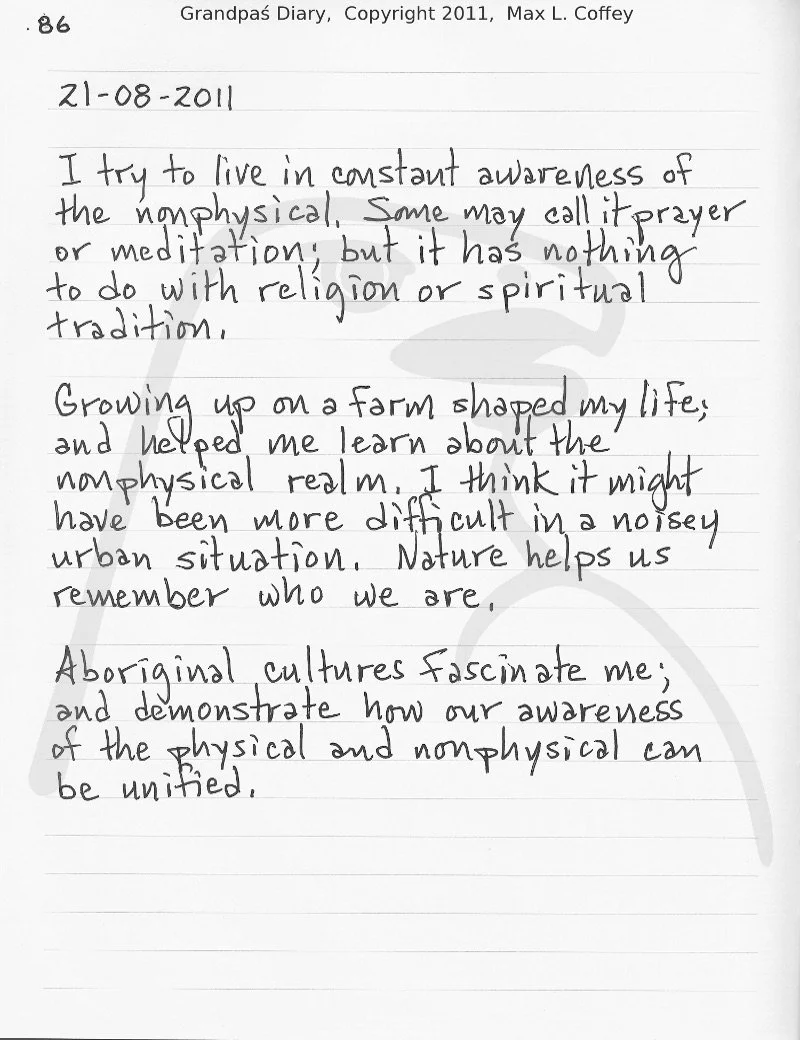 Grandpaś Diary, Copyright 2011, Max L. Coffey
. 86
21-08-2011
I try to live in constant awareness of
the nonphysical. Some may call it prayer
or meditation; but it has nothing
to do with religion or spiritual
tradition.
Growing up on a farm shaped my life;
and helped me learn about the
nonphysical realm. I think it might
have been more difficult in a noisey
urban situation. Nature helps us
remember who we are.
Aboriginal cultures fascinate me;
and demonstrate how our awareness
of the physical and nonphysical can
be unified.